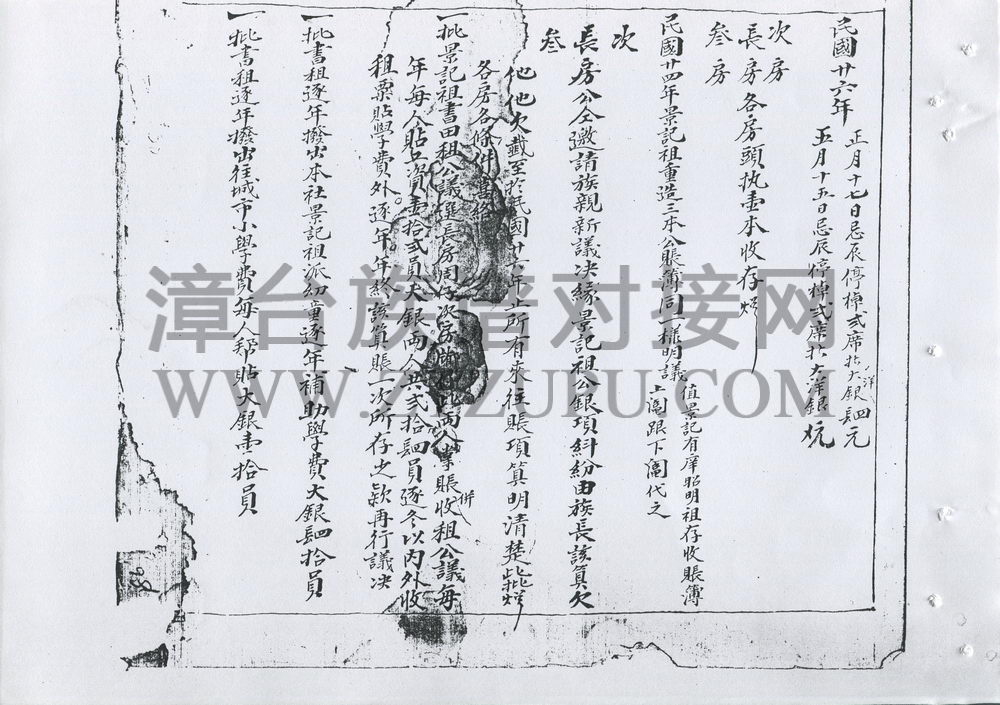 民國廿六年
正月十七日忌辰停棹弍席拈大銀四元
洋
五月十五日忌辰停棹弍席拈大洋銀
次房
長房各房頭执壹本收存
叁房
民國廿四年景記祖重造三本公賬簿同一樣明議
值景記有庠昭明祖存收賬簿
上閣跟下閣代之
次
長房公仝邀請族親新議决緣景記祖公銀項糾紛由族長該算欠
叁
他他欠截至於民國廿 年止所有來往賬項算明清楚批
各房各條件
一批景記祖書田租公議選長房同存次房 此兩人掌賬收租公議每
併
年每人貼工資壹拾弍員大銀兩人共弍拾四員逐冬以内外收
租票貼學費外。逐年年終該算賬一次所存之款再行議决
一批書租逐年撥出本社景記祖派幼童逐年補助學費大銀四拾員
一批書租逐年撥出往城市小學費每人 貼大銀壹拾員
98
漳台族谱对接网
WWW.ZTZUPU.COM